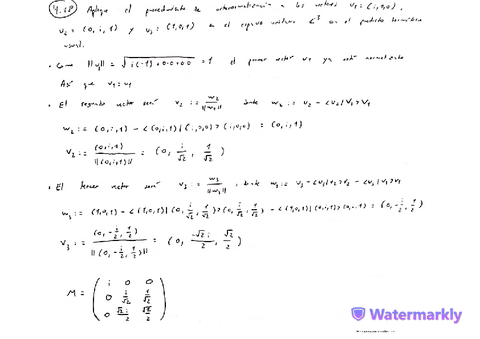 4.18 Aplique el procedimiento de ortonormalización a los vectores v₁ = (i,0,0),
v₂ = (0,i,1) y v₃ = (1,0,1) en el espacio unitario ℂ³ con el producto hermítico
usual.
• Como ||v₁|| = √(i(-i)+0·0+0·0) = 1 el primer vector v₁ ya está normalizado
Así que v₁ = v₁
• El segundo vector será v₂ := w₂/||w₂||, donde w₂ := v₂ - <v₂|v₁>v₁
w₂ := (0,i,1) - <(0,i,1)|(i,0,0)>(i,0,0) = (0,i,1)
v₂ := (0,i,1)/||(0,i,1)|| = (0, i/√2, 1/√2)
• El tercer vector será v₃ := w₃/||w₃||, donde w₃ := v₃ - <v₃|v₂>v₂ - <v₃|v₁>v₁
w₃ := (1,0,1) - <(1,0,1)|(0, i/√2, 1/√2)>(0, i/√2, 1/√2) - <(1,0,1)|(i,0,0)>(i,0,0) = (0, -i/2, 1/2)
v₃ := (0, -i/2, 1/2)/||(0, -i/2, 1/2)|| = (0, -√2i/2, √2/2)
M = ( i 0 0
0 i/√2 1/√2
0 √2i/2 √2/2 )
Watermarkly